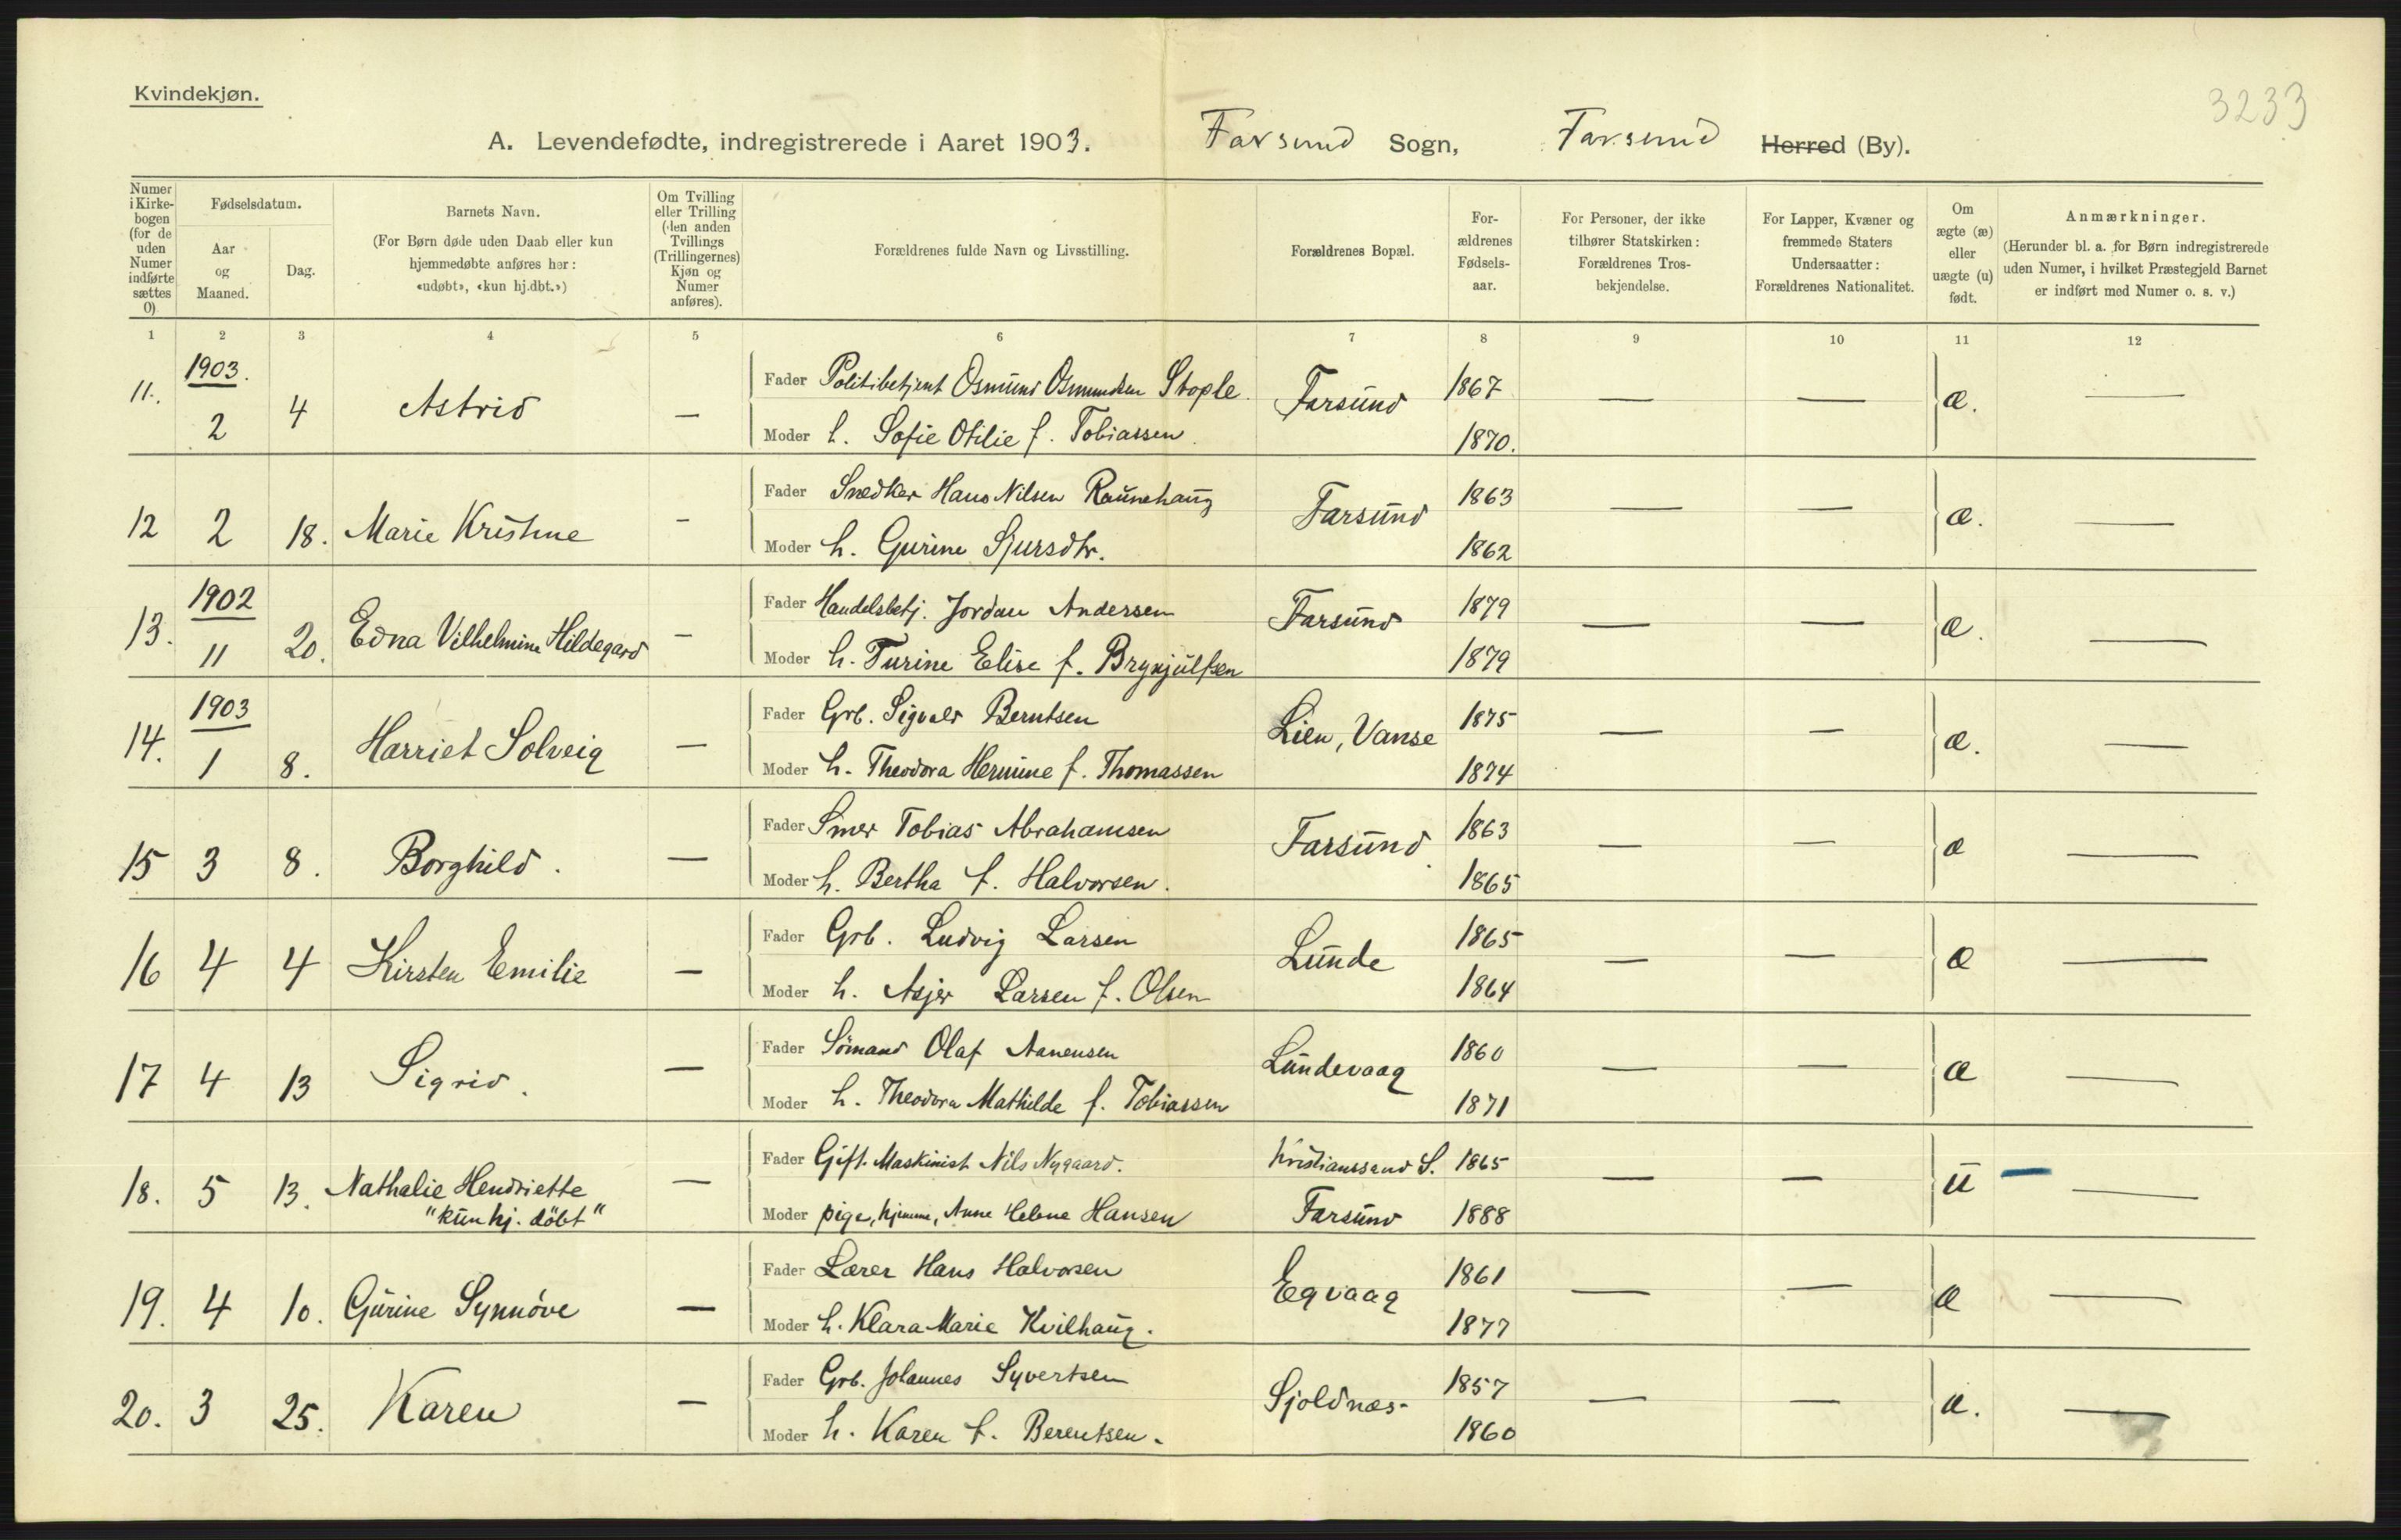 Kvindekjøn.
3233
A. Levendefødte, indregistrerede i Aaret 1903. Farsund Sogn, Farsund Herred (By).
Numer i Kirkebogen (for de uden Numer indførte sættes 0)
Fødselsdatum.
Aar og Maaned.
Dag.
Barnets Navn.
(For Børn døde uden Daab eller kun hjemmedøbte anføres her: «udøbt», «kun hj.dbt.»)
Om Tvilling eller Trilling (den anden Tvillings (Trillingernes) Kjøn og Numer anføres).
Forældrenes fulde Navn og Livsstilling.
Forældrenes Bopæl.
Forældrenes Fødselsaar.
For Personer, der ikke tilhører Statskirken: Forældrenes Trosbekjendelse.
For Lapper, Kvæner og fremmede Staters Undersaatter: Forældrenes Nationalitet.
Om ægte (æ) eller uægte (u) født.
Anmærkninger.
(Herunder bl. a. for Børn indregistrerede uden Numer, i hvilket Præstegjeld Barnet er indført med Numer o. s. v.)
1 2 3 4 5 6 7 8 9 10 11 12
11. 1903. 2 4 Astrid — Fader Politibetjent Osmund Osmundsen Stople. Farsund 1867 — — æ. —
Moder h. Sofie Otilie f. Tobiassen. 1870.
12 2 18. Marie Kristine - Fader Snedker Hans Nilsen Raunehaug Farsund 1863 — — æ. —
Moder h. Gurine Sjursdtr. 1862
13. 1902 11 20. Edna Vilhelmine Hildegard — Fader Handelsbetj. Jordan Andersen Farsund 1879 — — æ. —
Moder h. Turine Elise f. Brynjulfsen 1879
14. 1903 1 8. Harriet Solveig — Fader Grb. Sigvald Berntsen Lien, Vanse 1875 — — æ. —
Moder h. Theodora Hermine f. Thomassen 1874
15 3 8. Borghild. — Fader Smed Tobias Abrahamsen Farsund. 1863 — — æ —
Moder h. Bertha f. Halvorsen. 1865
16 4 4 Kirsten Emilie — Fader Grb. Ludvig Larsen Lunde 1865 — — æ —
Moder h. Asjer Larsen f. Olsen 1864
17 4 13 Sigrid. — Fader Sömand Olaf Aanensen Lundevaag 1860 — — æ —
Moder h. Theodora Mathilde f. Tobiassen 1871
18. 5 13. Nathalie Hendriette — Fader Gift. Maskinist Nils Nygaard. Kristianssand S. 1865 — — u — —
"kun hj. döbt" Moder pige, hjemme, Anne Helene Hansen Farsund 1888
19. 4 10. Gurine Synnöve — Fader Lærer Hans Halvorsen Eqvaag 1861 — — æ —
Moder h. Klara Marie Kvilhaug. 1877
20. 3 25. Karen — Fader Grb. Johannes Syvertsen Sjoldnæs- 1857 — — æ. —
Moder h. Karen f. Berentsen. 1860